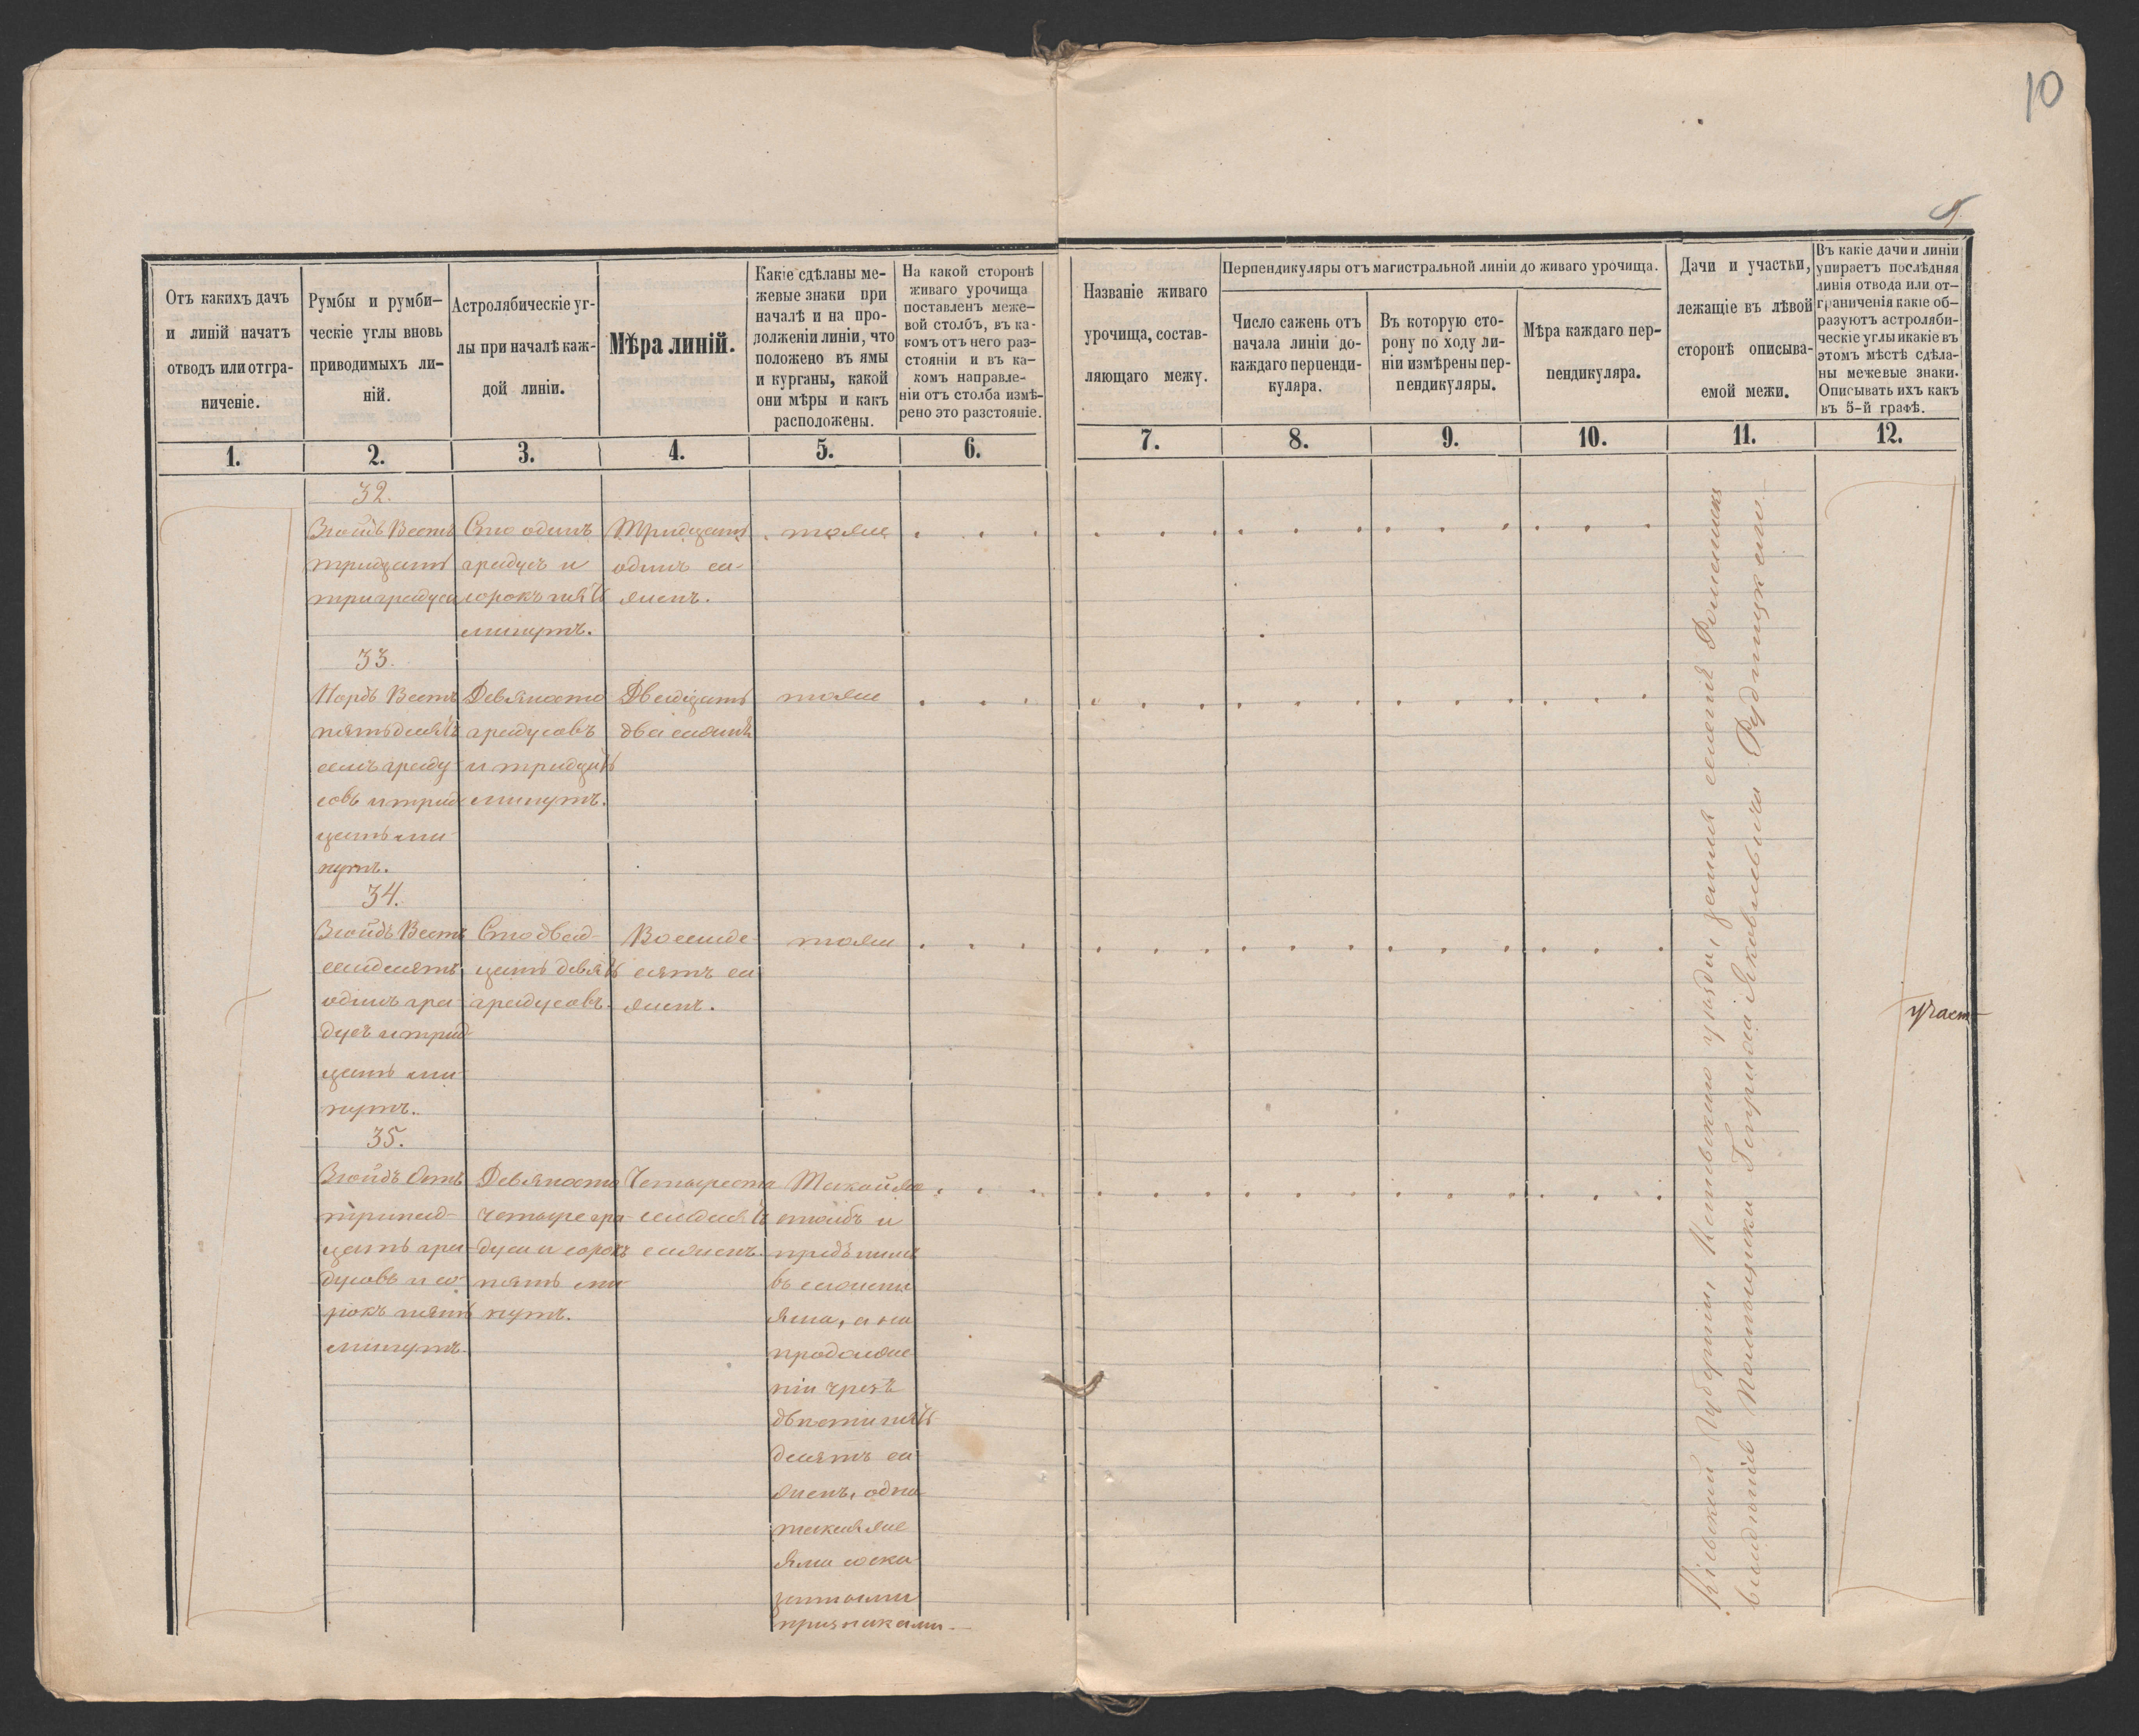 10
5.
Отъ какихъ дачъ
и линій начатъ
отводъ или отгра-
ниченіе.
Румбы и румби-
ческіе углы вновь
приводимыхъ ли-
ній.
Астролябическіе уг-
лы при началѣ каж-
дой линіи.
Мѣра линій.
Какіе сдѣланы ме-
жевые знаки при
началѣ и на про-
долженіи линіи, что
положено въ ямы
и курганы, какой
они мѣры и какъ
расположены.
На какой сторонѣ
живаго урочища
поставленъ меже-
вой столбъ, въ ка-
комъ отъ него раз-
стояніи и въ ка-
комъ направле-
ніи отъ столба измѣ-
рено это разстояніе.
Названіе живаго
урочища, состав-
ляющаго межу.
Перпендикуляры отъ магистральной линіи до живаго урочища.
Число сажень отъ
начала линіи до-
каждаго перпенди-
куляра.
Въ которую сто-
рону по ходу ли-
ніи измѣрены пер-
пендикуляры.
Мѣра каждаго пер-
пендикуляра.
Дачи и участки,
лежащіе въ лѣвой
сторонѣ описыва-
емой межи.
Въ какіе дачи и линіи
упираетъ послѣдняя
линія отвода или от-
граниченія какіе об-
разуютъ астроляби-
ческіе углы и какіе въ
этомъ мѣстѣ сдѣла-
ны межевые знаки.
Описывать ихъ какъ
въ 5-й графѣ.
1. 2. 3. 4. 5. 6. 7. 8. 9. 10. 11. 12.
32.
Зюйдъ Вестъ
тридцать
три градуса
Сто одинъ
градусъ и
сорокъ пять
минутъ.
Тридцать
одинъ са-
жень.
тоже
33.
Нордъ Вестъ
пятьдесятъ
семь граду
совъ и трид
цать ми-
нутъ.
Девяносто
градусовъ
и тридцать
минутъ.
Двадцать
два сажени
тоже
34.
Зюйдъ Вестъ
семдесятъ
одинъ гра-
дусъ и трид
цать ми-
нутъ.
Сто двад-
цать девять
градусовъ.
Восемде-
сятъ са
жень.
тоже
35.
Зюйдъ Остъ
тринад-
цать гра-
дусовъ и со-
рокъ пять
минутъ.
Девяносто
четыре гра-
дуса и сорокъ
пять ми-
нутъ.
Четыреста
семдесятъ
сажень.
Такой же
столбъ и
предъ нимъ
въ сажени
яма, а на
продолже-
ніи чрезъ
двѣсти пять
десятъ са
жень, одна
такая же
яма со ска
занными
признаками.
Кіевской Губерніи, Каневскаго уѣзда, земля селенія
владѣнія Помѣщика Генриха Яковлевича Рудницкаго
участ-